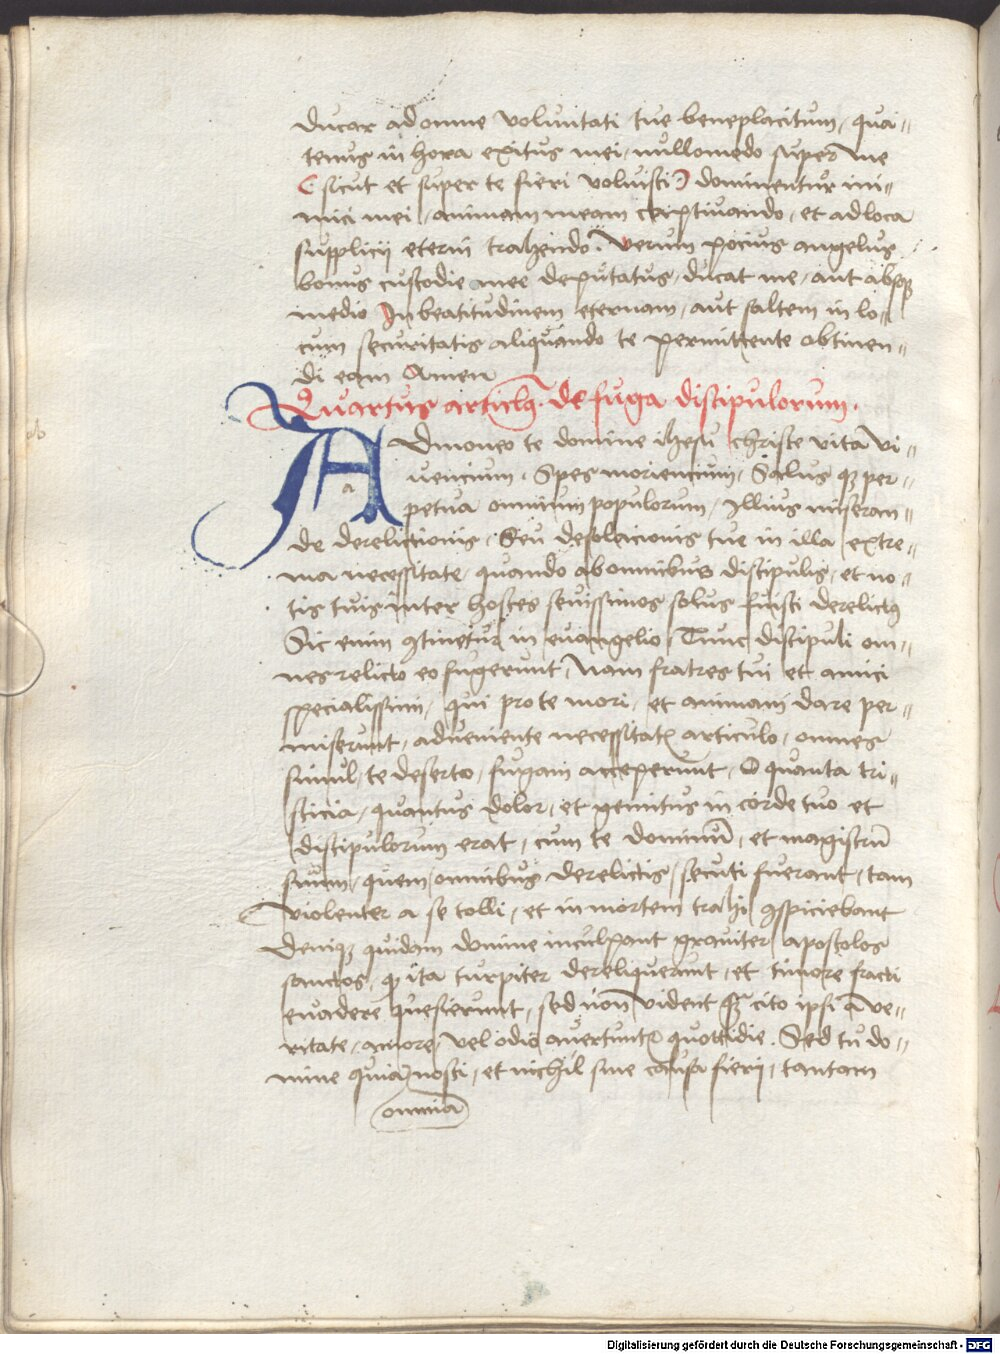 ducar ad omne voluntati tue beneplacitum, qua-
tenus in hora exitus mei, nullomodo super me
(sicut et super te fieri voluisti) dominentur ini-
mici mei, animam meam captivando, et ad loca
supplicii eterni trahendo. Verum pocius angelus
bonus custodie mee deputatus, ducat me, aut absqȝ
medio In beatitudinem eternam, aut saltem in lo-
cum securitatis aliquando te permittente obtinen-
di eam Amen
Quartus articlꝰ. de fuga discipulorum.
Admoneo te domine ihesu christe vita vi-
vencium. Spes moriencium, Salus qȝ per-
petua omnium populorum, Illius miseran-
de derelictionis, Seu desolacionis tue in illa extre-
ma necessitate, quando ab omnibus discipulis, et no-
tis tuis inter hostes sevissimos solus fuisti derelictꝰ
Sic enim ꝯtinetur in euangelio Tunc discipuli om-
nes relicto eo fugerunt, Nam fratres tui et amici
specialissimi, qui pro te mori, et animam dare per-
miserunt, adveniente necessitatꝭ articulo, omnes
simul, te deserto, fugam acceperunt, O quanta tri-
sticia, quantus dolor, et gemitus in corde tuo et
discipulorum erat, cum te dominū, et magistrū
suum, quem omnibus derelictis, secuti fuerant, tam
violenter a se tolli, et in mortem trahi ꝯspiciebant
Deniqȝ quidam domine inculpant graviter apostolos
sanctos, ꝙ ita turpiter dereliquerunt, et timore fracti
evadere quesierunt, sed non vident qȝ̄ cito ipsi a ve-
ritate, amore, vel odio avertuntꝛ quottidie. Sed tu do-
mine quia nosti, et nichil sine causa fierij, tantam
omnia
Digitalisierung gefördert durch die Deutsche Forschungsgemeinschaft - DFG